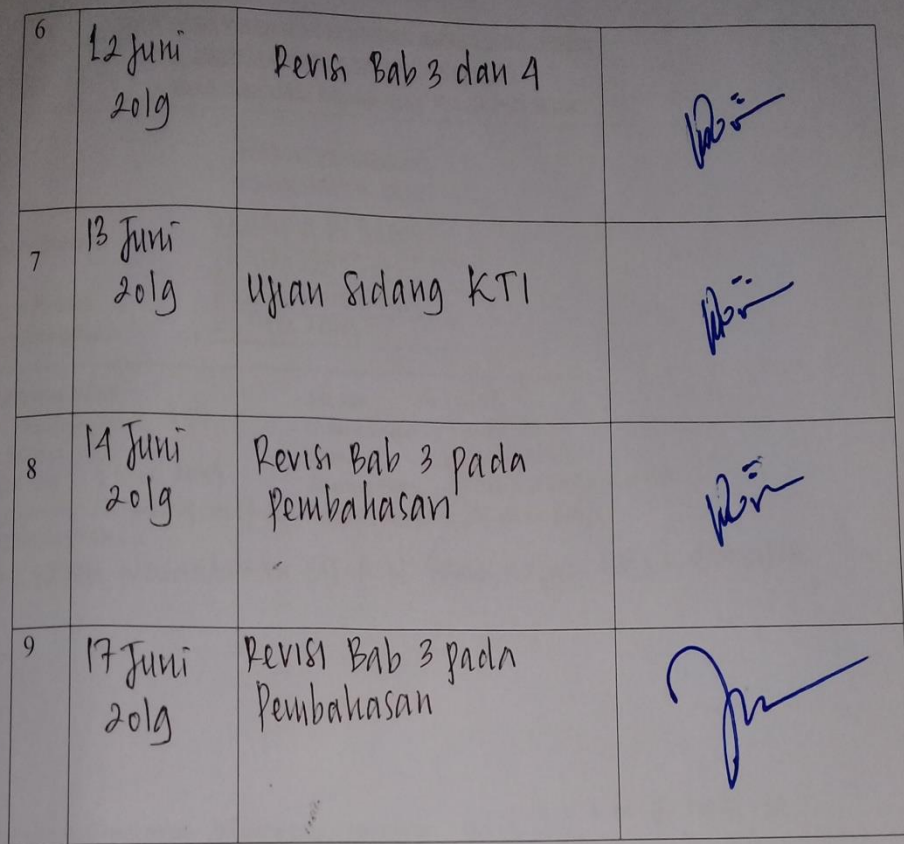 6
12 Juni
2019
Revisi Bab 3 dan 4
7
13 Juni
2019
Ujian Sidang KTI
8
14 Juni
2019
Revisi Bab 3 pada
Pembahasan
9
17 Juni
2019
Revisi Bab 3 pada
Pembahasan